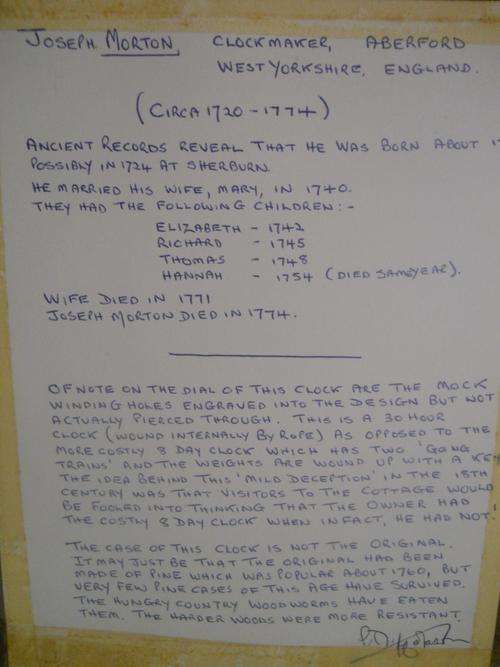 JOSEPH MORTON, CLOCKMAKER, ABERFORD
WEST YORKSHIRE, ENGLAND.
(CIRCA 1720 - 1774)
ANCIENT RECORDS REVEAL THAT HE WAS BORN ABOUT
POSSIBLY IN 1724 AT SHERBURN.
HE MARRIED HIS WIFE, MARY, IN 1740.
THEY HAD THE FOLLOWING CHILDREN:-
ELIZABETH - 1742
RICHARD - 1745
THOMAS - 1748
HANNAH - 1754 (DIED SAME YEAR).
WIFE DIED IN 1771
JOSEPH MORTON DIED IN 1774.
OF NOTE ON THE DIAL OF THIS CLOCK ARE THE MOCK
WINDING HOLES ENGRAVED INTO THE DESIGN BUT NOT
ACTUALLY PIERCED THROUGH. THIS IS A 30 HOUR
CLOCK (WOUND INTERNALLY BY ROPE) AS OPPOSED TO THE
MORE COSTLY 8 DAY CLOCK WHICH HAS TWO 'GOING
TRAINS' AND THE WEIGHTS ARE WOUND UP WITH A KE
THE IDEA BEHIND THIS 'MILD DECEPTION' IN THE 18TH
CENTURY WAS THAT VISITORS TO THE COTTAGE WOULD
BE FOOLED INTO THINKING THAT THE OWNER HAD
THE COSTLY 8 DAY CLOCK WHEN IN FACT, HE HAD NOT!
THE CASE OF THIS CLOCK IS NOT THE ORIGINAL.
IT MAY JUST BE THAT THE ORIGINAL HAD BEEN
MADE OF PINE WHICH WAS POPULAR ABOUT 1760, BUT
VERY FEW PINE CASES OF THIS AGE HAVE SURVIVED.
THE HUNGRY COUNTRY WOODWORMS HAVE EATEN
THEM. THE HARDER WOODS WERE MORE RESISTANT.